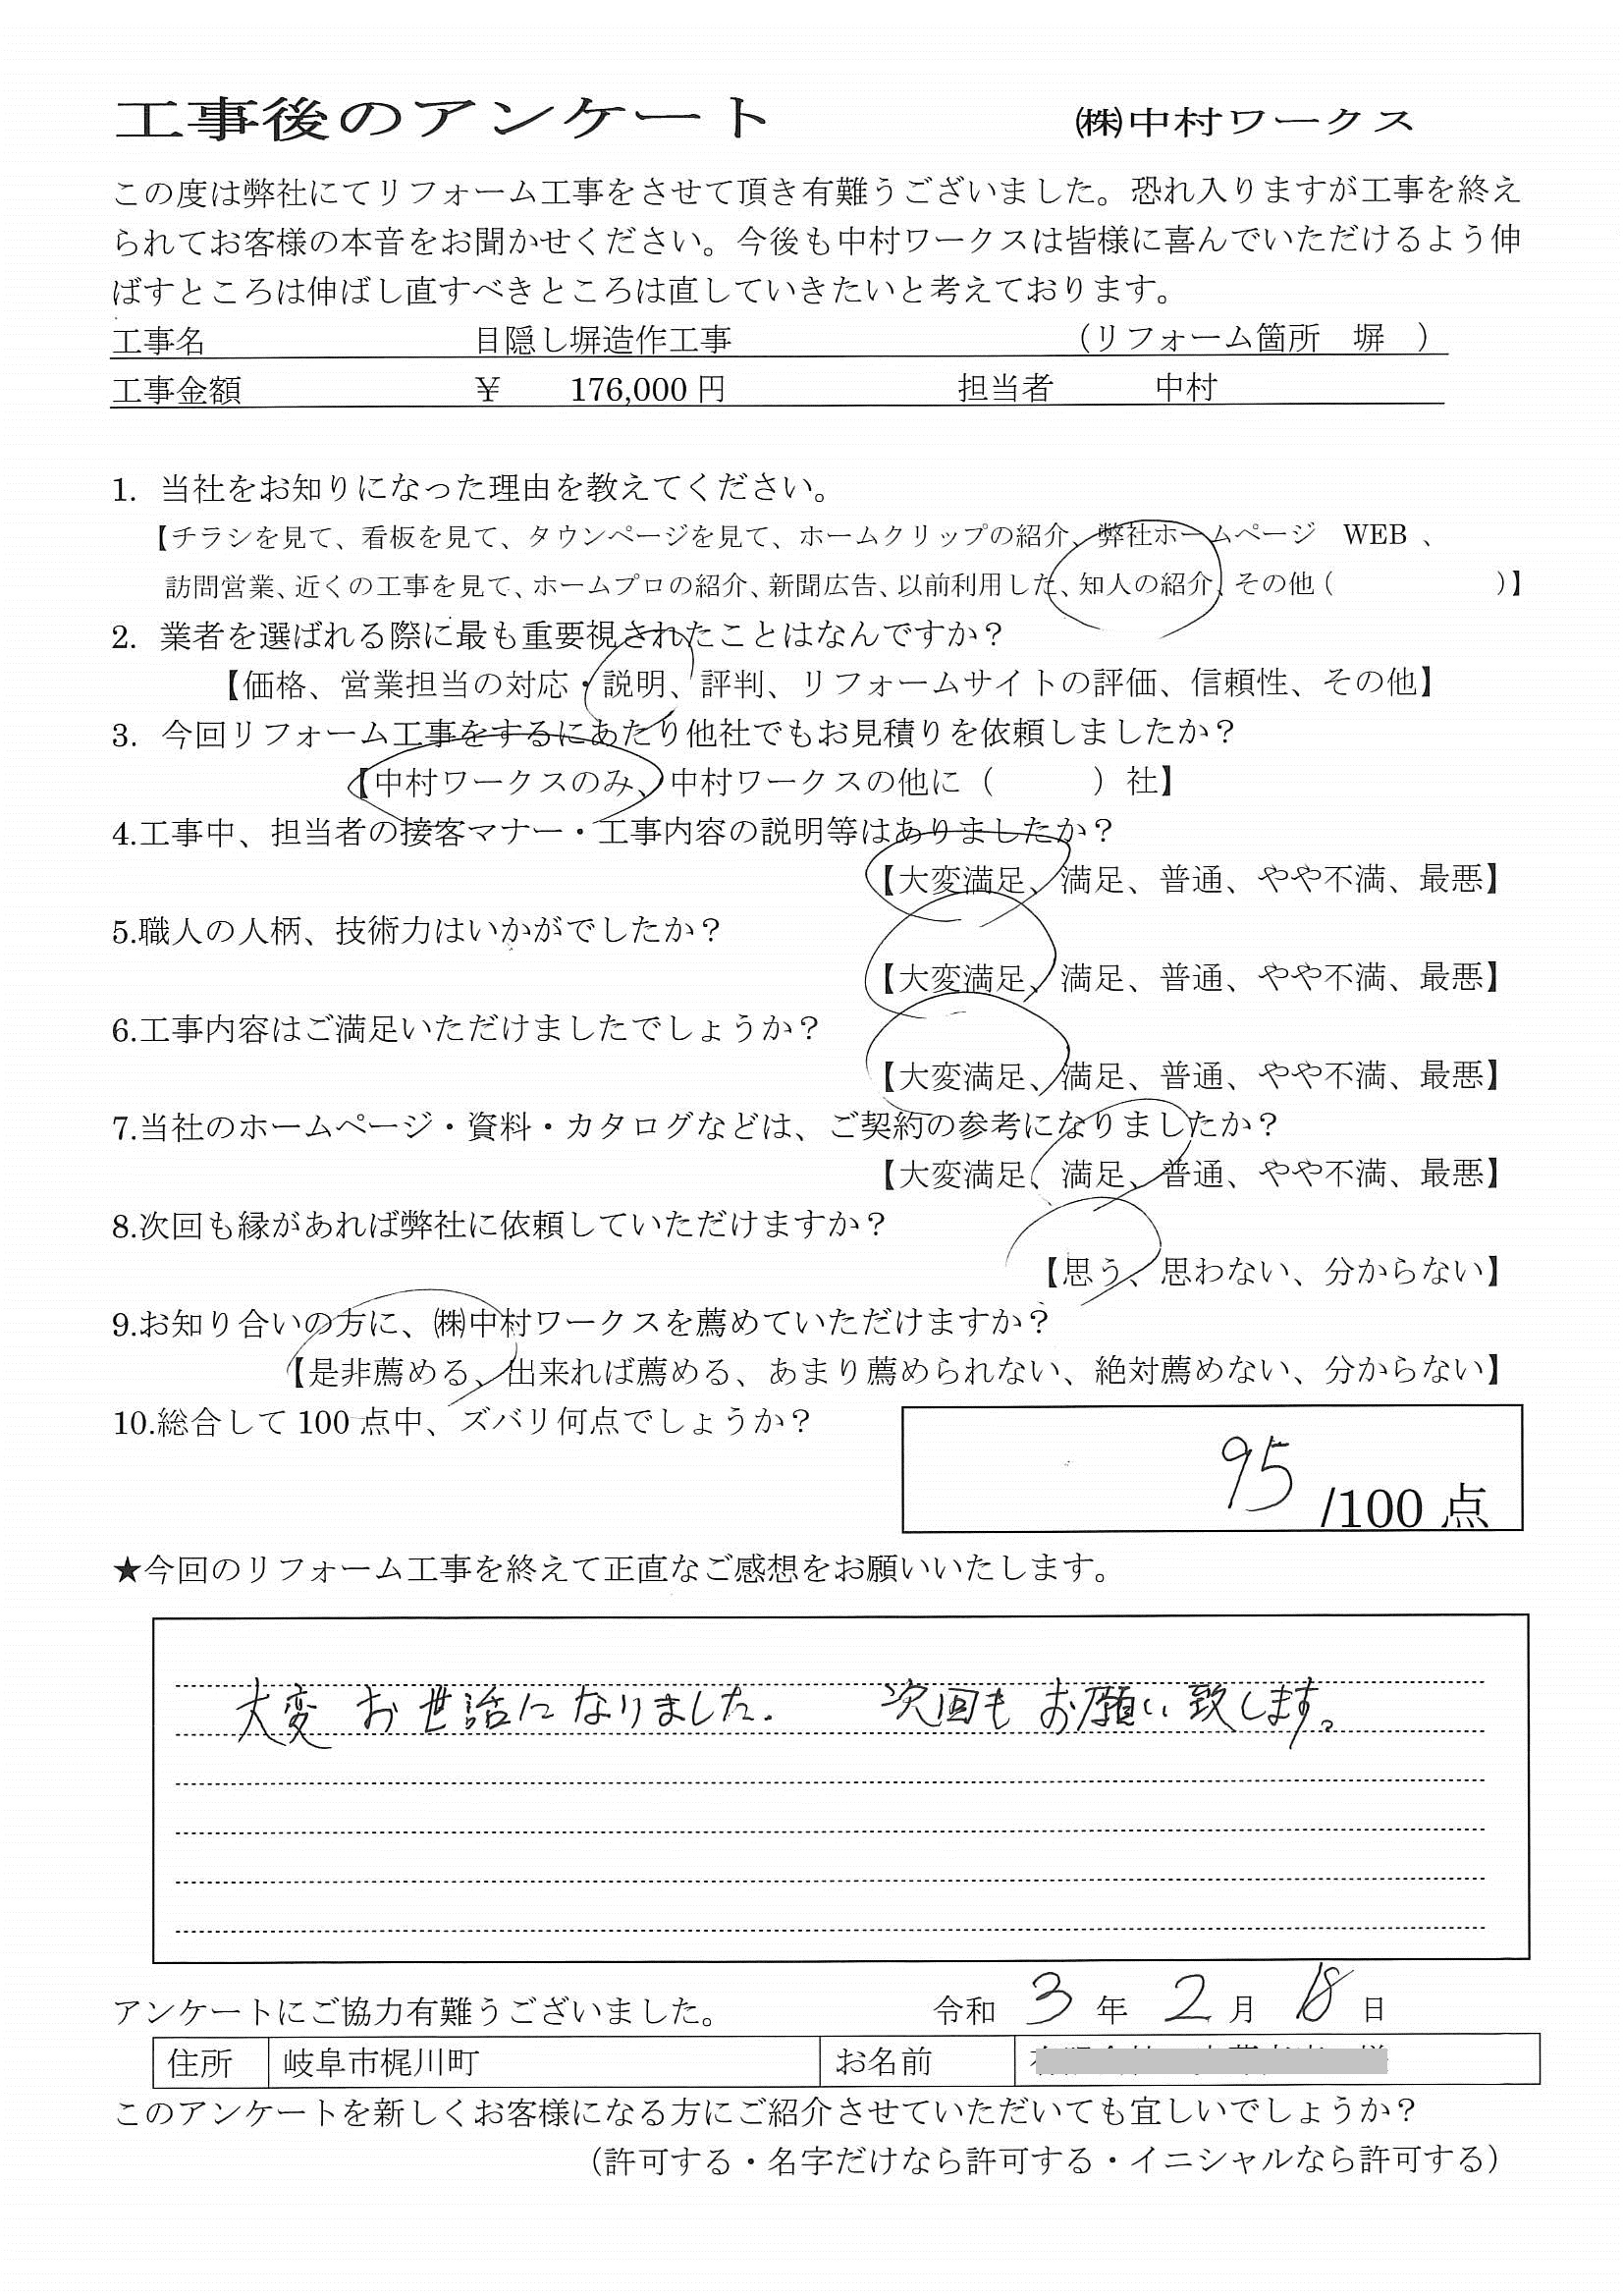 工事後のアンケート ㈱中村ワークス
この度は弊社にてリフォーム工事をさせて頂き有難うございました。恐れ入りますが工事を終え
られてお客様の本音をお聞かせください。今後も中村ワークスは皆様に喜んでいただけるよう伸
ばすところは伸ばし直すべきところは直していきたいと考えております。
工事名 目隠し塀造作工事 （リフォーム箇所 塀 ）
工事金額 ￥ 176,000 円 担当者 中村
1. 当社をお知りになった理由を教えてください。
【チラシを見て、看板を見て、タウンページを見て、ホームクリップの紹介、弊社ホームページ WEB 、
訪問営業、近くの工事を見て、ホームプロの紹介、新聞広告、以前利用した、知人の紹介、その他（ ）】
2. 業者を選ばれる際に最も重要視されたことはなんですか？
【価格、営業担当の対応・説明、評判、リフォームサイトの評価、信頼性、その他】
3. 今回リフォーム工事をするにあたり他社でもお見積りを依頼しましたか？
【中村ワークスのみ、中村ワークスの他に（ ）社】
4.工事中、担当者の接客マナー・工事内容の説明等はありましたか？
【大変満足、満足、普通、やや不満、最悪】
5.職人の人柄、技術力はいかがでしたか？
【大変満足、満足、普通、やや不満、最悪】
6.工事内容はご満足いただけましたでしょうか？
【大変満足、満足、普通、やや不満、最悪】
7.当社のホームページ・資料・カタログなどは、ご契約の参考になりましたか？
【大変満足、満足、普通、やや不満、最悪】
8.次回も縁があれば弊社に依頼していただけますか？
【思う、思わない、分からない】
9.お知り合いの方に、㈱中村ワークスを薦めていただけますか？
【是非薦める、出来れば薦める、あまり薦められない、絶対薦めない、分からない】
10.総合して 100 点中、ズバリ何点でしょうか？
95 /100 点
★今回のリフォーム工事を終えて正直なご感想をお願いいたします。
大変お世話になりました. 次回もお願い致します。
アンケートにご協力有難うございました。 令和 3 年 2 月 18 日
住所 岐阜市梶川町 お名前
このアンケートを新しくお客様になる方にご紹介させていただいても宜しいでしょうか？
（許可する・名字だけなら許可する・イニシャルなら許可する）